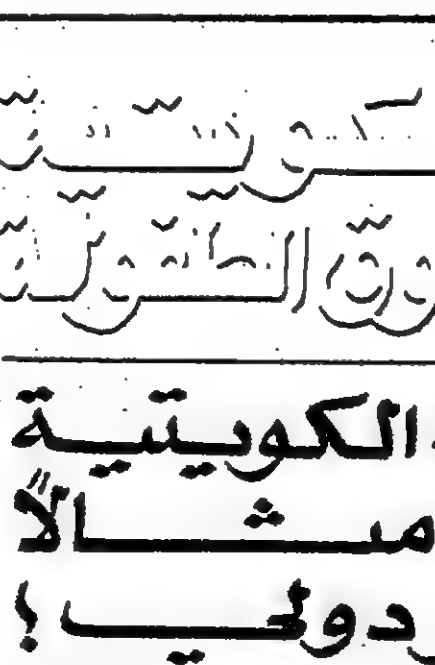 كويتية
وق الطفولة
الكويتية
مثالاً
دولي ؟